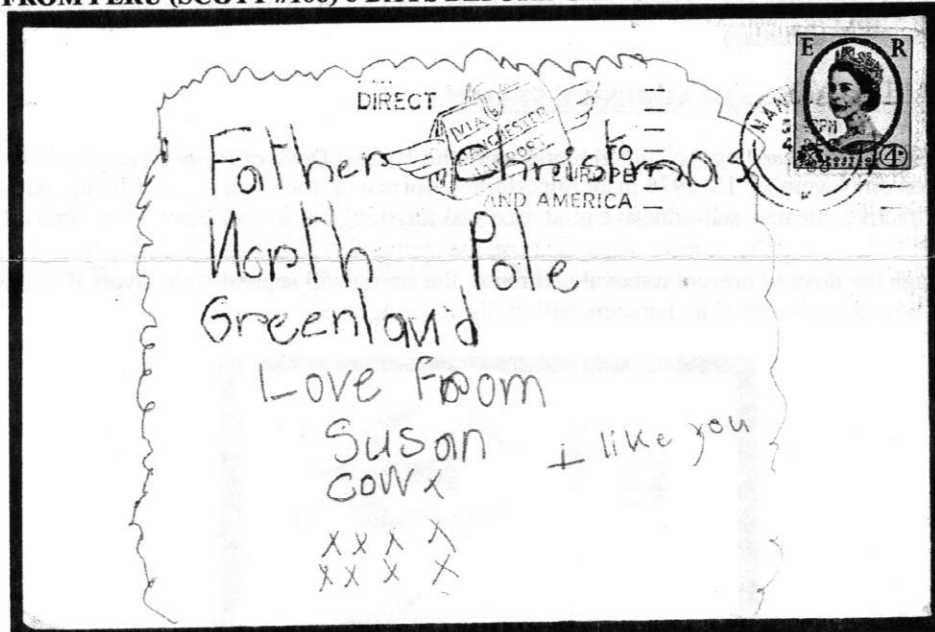 FROM PERU (SCOTT #
E R
DIRECT
VIA
MANCHESTER
AIRPORT
to
EUROPE
AND AMERICA
MAN
4D
Father Christmas
North Pole
Greenland
Love Froom
Susan
Cowx
I like you
X X X X
X X X X